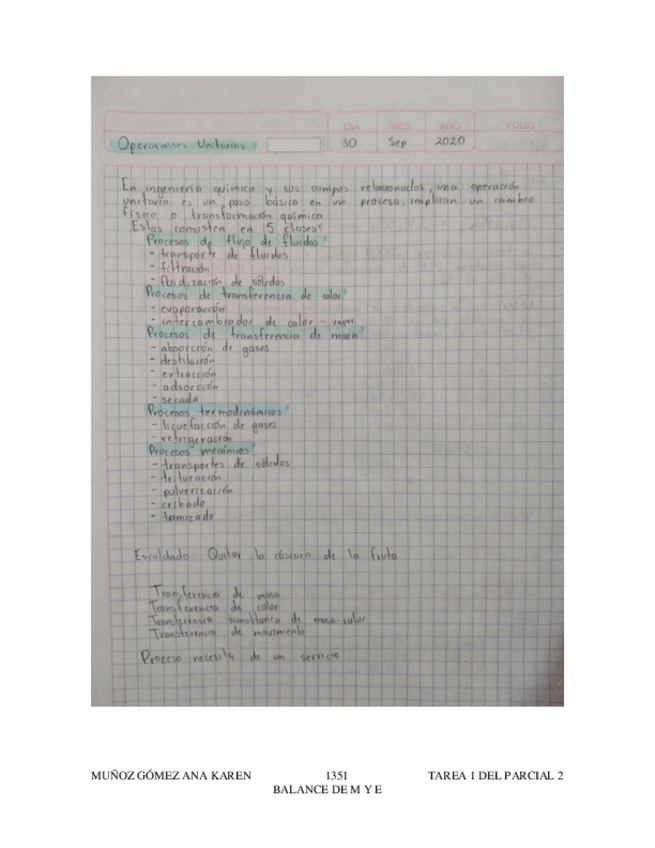 DIA MES AÑO FOLIO
Operaciones Unitarias 30 Sep 2020
En ingeniería química y sus campos relacionados, una operación
unitaria es un paso básico en un proceso, implican un cambio
físico o transformación química
Estas consisten en 5 clases:
Procesos de flujo de fluidos
- transporte de fluidos
- filtración
- fluidización de sólidos
Procesos de transferencia de calor
- evaporación
- intercambiador de calor - vapor
Procesos de transferencia de masa
- absorción de gases
- destilación
- extracción
- adsorción
- secado
Procesos termodinámicos
- licuefacción de gases
- refrigeración
Procesos mecánicos
- transportes de sólidos
- trituración
- pulverización
- cribado
- tamizado
Escaldado Quitar la cáscara de la fruta
Transferencia de masa
Transferencia de calor
Transferencia simultánea de masa-calor
Transferencia de movimiento
Proceso necesita de un servicio
MUÑOZ GÓMEZ ANA KAREN 1351 TAREA 1 DEL PARCIAL 2
BALANCE DE M Y E